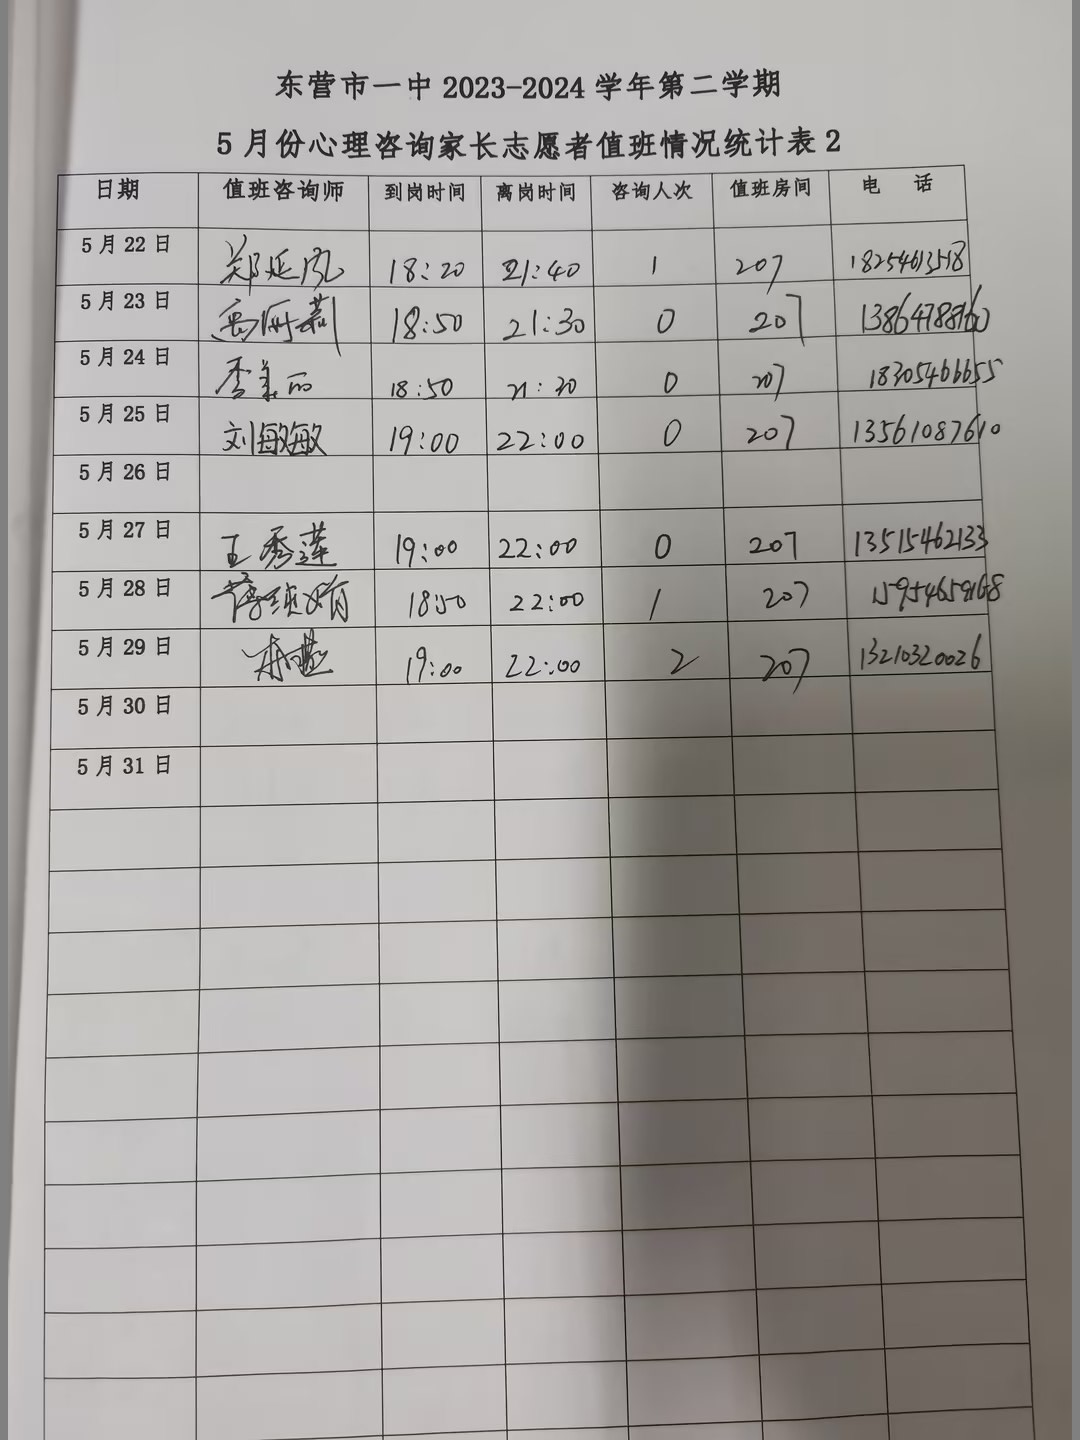 东营市一中 2023-2024 学年第二学期
5 月份心理咨询家长志愿者值班情况统计表 2
日期 值班咨询师 到岗时间 离岗时间 咨询人次 值班房间 电 话
5 月 22 日 郑延凤 18:20 21:40 1 207 18254613518
5 月 23 日 18:50 21:30 0 207
5 月 24 日 李美丽 18:50 21:20 0 207 18305466655
5 月 25 日 刘敏敏 19:00 22:00 0 207 13561087610
5 月 26 日
5 月 27 日 王秀莲 19:00 22:00 0 207 13515462133
5 月 28 日 18:50 22:00 1 207
5 月 29 日 19:00 22:00 2 207 13210320026
5 月 30 日
5 月 31 日